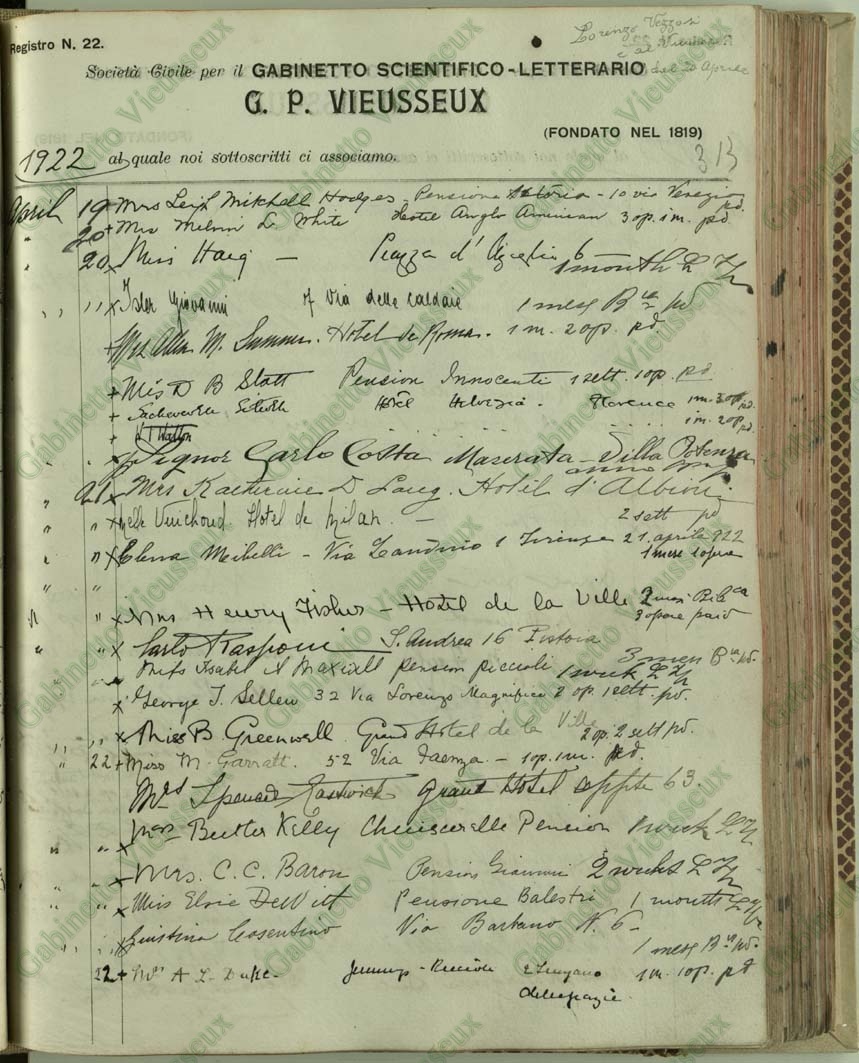 Registro N. 22.
Lorenzo Vezzosi
è al Vieusseux
dal 20 Aprile
Società Civile per il GABINETTO SCIENTIFICO-LETTERARIO
G. P. VIEUSSEUX
(FONDATO NEL 1819)
1922 al quale noi sottoscritti ci associamo.
313
April 19 + Mrs Leigh Mitchell Hodges Pensione - 10 via Venezia pd.
" 20 + Mrs Melvin L. White Hotel Anglo American 3 op. 1 m. pd
" 20 x Miss Haeg — Piazza d'Azeglio 6
1 month
" " x Isler Giovanni 7 Via delle Caldaie 1 mese pd
+ Mrs Allan M. Summer. Hotel de Roma. 1 m. 2 op. pd.
+ Miss D B Statt Pension Innocenti 1 sett. 1 op. pd
+ Sacheverell Sitwell Hôtel Helvezia. Florence 1 m. 3 op. pd.
+ W T Walton 1 m. 2 op. pd.
" Signor Carlo Costa Macerata - Villa Potenza
anno
" 21 x Mrs Katherine D Lang. Hotel d'Albion
" Melle Vuichoud Hotel de Milan. — 2 sett pd
" x Elena Meibelli - Via Landino 1 Firenze 21. aprile 922
1 mese 1 opera
" "
" x Mrs Henry Fisher - Hotel de la Ville 2 mesi
3 opere paid
" " x Carlo Rasponi S. Andrea 16 Pistoia
3 mesi pd.
Miss Isabel N Maxwell pension piccioli 1 week
x George T. Sellew 32 Via Lorenzo Magnifico 2 op. 1 sett. pd.
" " x Miss B Greenwell. Grand Hotel de la Ville
2 op. 2 sett pd.
" 22 + Miss M. Garratt. 52 Via Faenza. - 1 op. 1 m. pd.
Mrs Spencer Eastwick Grand Hotel 63.
" " x Mrs Butler Kelly Pension 1 week
" " x Mrs. C. C. Baron Pension Giannini 2 weeks
" " x Miss Elsie DeWitt Pensione Balestri 1 month
" " x Giustina Cosentino Via Barbano N. 6-
1 mese pd.
22 + A L Duke - Jennings-Riccioli 2 Lungarno
delle grazie.
1 m. 1 op. pd
Gabinetto Vieusseux